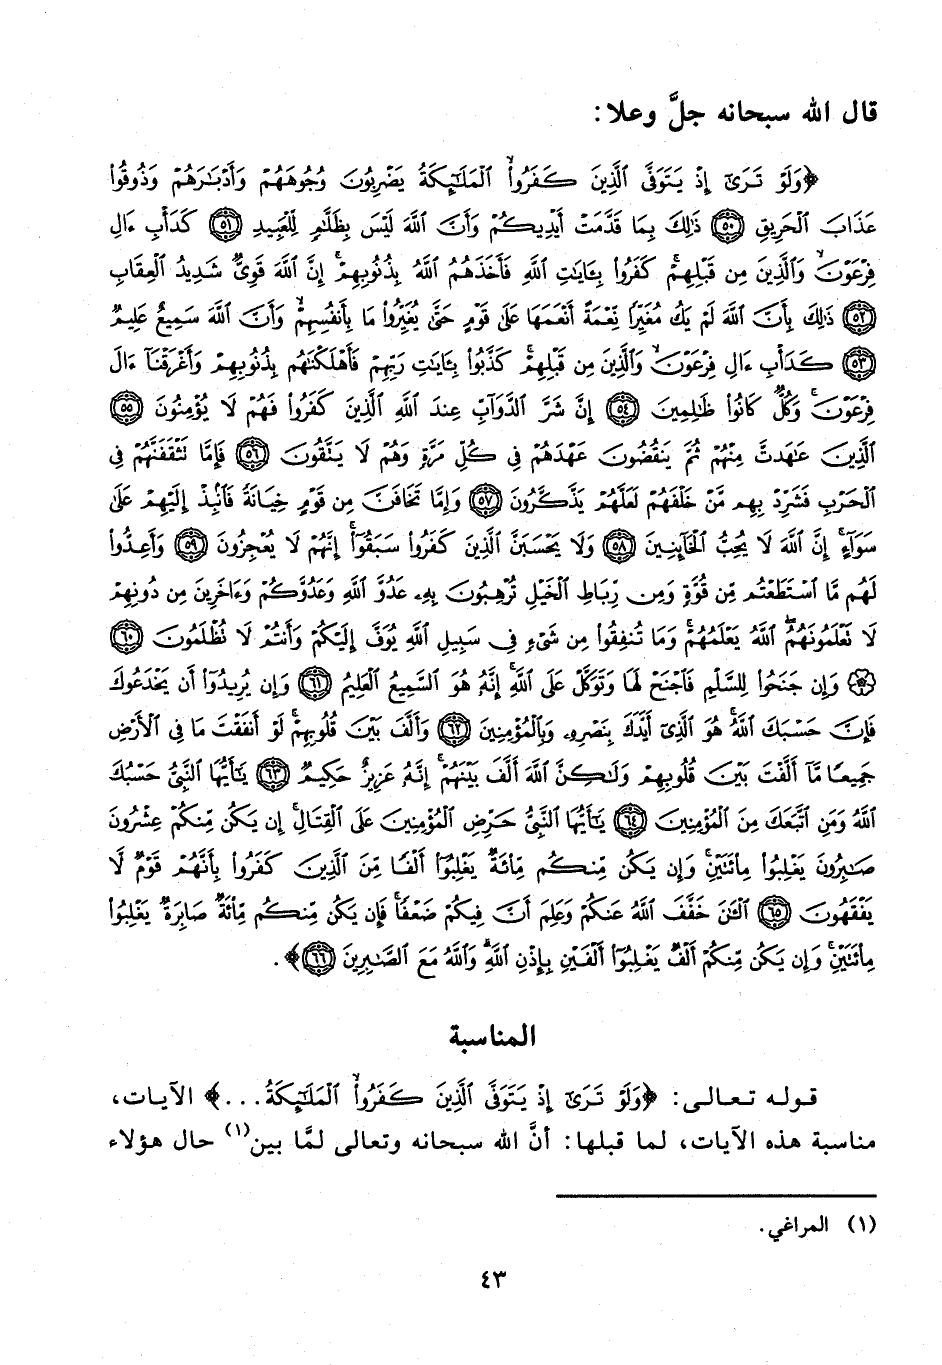 قال الله سبحانه جلَّ وعلا:
﴿وَلَوْ تَرَىٰٓ إِذْ يَتَوَفَّى ٱلَّذِينَ كَفَرُوا۟ ۙ ٱلْمَلَٰٓئِكَةُ يَضْرِبُونَ وُجُوهَهُمْ وَأَدْبَٰرَهُمْ وَذُوقُوا۟
عَذَابَ ٱلْحَرِيقِ ٥٠ ذَٰلِكَ بِمَا قَدَّمَتْ أَيْدِيكُمْ وَأَنَّ ٱللَّهَ لَيْسَ بِظَلَّٰمٍ لِّلْعَبِيدِ ٥١ كَدَأْبِ ءَالِ
فِرْعَوْنَ ۙ وَٱلَّذِينَ مِن قَبْلِهِمْ ۚ كَفَرُوا۟ بِـَٔايَٰتِ ٱللَّهِ فَأَخَذَهُمُ ٱللَّهُ بِذُنُوبِهِمْ ۚ إِنَّ ٱللَّهَ قَوِىٌّ شَدِيدُ ٱلْعِقَابِ
٥٢ ذَٰلِكَ بِأَنَّ ٱللَّهَ لَمْ يَكُ مُغَيِّرًا نِّعْمَةً أَنْعَمَهَا عَلَىٰ قَوْمٍ حَتَّىٰ يُغَيِّرُوا۟ مَا بِأَنفُسِهِمْ ۙ وَأَنَّ ٱللَّهَ سَمِيعٌ عَلِيمٌ
٥٣ كَدَأْبِ ءَالِ فِرْعَوْنَ ۙ وَٱلَّذِينَ مِن قَبْلِهِمْ ۚ كَذَّبُوا۟ بِـَٔايَٰتِ رَبِّهِمْ فَأَهْلَكْنَٰهُم بِذُنُوبِهِمْ وَأَغْرَقْنَآ ءَالَ
فِرْعَوْنَ ۚ وَكُلٌّ كَانُوا۟ ظَٰلِمِينَ ٥٤ إِنَّ شَرَّ ٱلدَّوَآبِّ عِندَ ٱللَّهِ ٱلَّذِينَ كَفَرُوا۟ فَهُمْ لَا يُؤْمِنُونَ ٥٥
ٱلَّذِينَ عَٰهَدتَّ مِنْهُمْ ثُمَّ يَنقُضُونَ عَهْدَهُمْ فِى كُلِّ مَرَّةٍ وَهُمْ لَا يَتَّقُونَ ٥٦ فَإِمَّا تَثْقَفَنَّهُمْ فِى
ٱلْحَرْبِ فَشَرِّدْ بِهِم مَّنْ خَلْفَهُمْ لَعَلَّهُمْ يَذَّكَّرُونَ ٥٧ وَإِمَّا تَخَافَنَّ مِن قَوْمٍ خِيَانَةً فَٱنۢبِذْ إِلَيْهِمْ عَلَىٰ
سَوَآءٍ ۚ إِنَّ ٱللَّهَ لَا يُحِبُّ ٱلْخَآئِنِينَ ٥٨ وَلَا يَحْسَبَنَّ ٱلَّذِينَ كَفَرُوا۟ سَبَقُوٓا۟ ۚ إِنَّهُمْ لَا يُعْجِزُونَ ٥٩ وَأَعِدُّوا۟
لَهُم مَّا ٱسْتَطَعْتُم مِّن قُوَّةٍ وَمِن رِّبَاطِ ٱلْخَيْلِ تُرْهِبُونَ بِهِۦ عَدُوَّ ٱللَّهِ وَعَدُوَّكُمْ وَءَاخَرِينَ مِن دُونِهِمْ
لَا تَعْلَمُونَهُمُ ۖ ٱللَّهُ يَعْلَمُهُمْ ۚ وَمَا تُنفِقُوا۟ مِن شَىْءٍ فِى سَبِيلِ ٱللَّهِ يُوَفَّ إِلَيْكُمْ وَأَنتُمْ لَا تُظْلَمُونَ ٦٠
۞ وَإِن جَنَحُوا۟ لِلسَّلْمِ فَٱجْنَحْ لَهَا وَتَوَكَّلْ عَلَى ٱللَّهِ ۚ إِنَّهُۥ هُوَ ٱلسَّمِيعُ ٱلْعَلِيمُ ٦١ وَإِن يُرِيدُوٓا۟ أَن يَخْدَعُوكَ
فَإِنَّ حَسْبَكَ ٱللَّهُ ۚ هُوَ ٱلَّذِىٓ أَيَّدَكَ بِنَصْرِهِۦ وَبِٱلْمُؤْمِنِينَ ٦٢ وَأَلَّفَ بَيْنَ قُلُوبِهِمْ ۚ لَوْ أَنفَقْتَ مَا فِى ٱلْأَرْضِ
جَمِيعًا مَّآ أَلَّفْتَ بَيْنَ قُلُوبِهِمْ وَلَٰكِنَّ ٱللَّهَ أَلَّفَ بَيْنَهُمْ ۚ إِنَّهُۥ عَزِيزٌ حَكِيمٌ ٦٣ يَٰٓأَيُّهَا ٱلنَّبِىُّ حَسْبُكَ
ٱللَّهُ وَمَنِ ٱتَّبَعَكَ مِنَ ٱلْمُؤْمِنِينَ ٦٤ يَٰٓأَيُّهَا ٱلنَّبِىُّ حَرِّضِ ٱلْمُؤْمِنِينَ عَلَى ٱلْقِتَالِ ۚ إِن يَكُن مِّنكُمْ عِشْرُونَ
صَٰبِرُونَ يَغْلِبُوا۟ مِا۟ئَتَيْنِ ۚ وَإِن يَكُن مِّنكُم مِّا۟ئَةٌ يَغْلِبُوٓا۟ أَلْفًا مِّنَ ٱلَّذِينَ كَفَرُوا۟ بِأَنَّهُمْ قَوْمٌ لَّا
يَفْقَهُونَ ٦٥ ٱلْـَٰٔنَ خَفَّفَ ٱللَّهُ عَنكُمْ وَعَلِمَ أَنَّ فِيكُمْ ضَعْفًا ۚ فَإِن يَكُن مِّنكُم مِّا۟ئَةٌ صَابِرَةٌ يَغْلِبُوا۟
مِا۟ئَتَيْنِ ۚ وَإِن يَكُن مِّنكُمْ أَلْفٌ يَغْلِبُوٓا۟ أَلْفَيْنِ بِإِذْنِ ٱللَّهِ ۗ وَٱللَّهُ مَعَ ٱلصَّٰبِرِينَ ٦٦﴾.
المناسبة
قوله تعالى: ﴿وَلَوْ تَرَىٰٓ إِذْ يَتَوَفَّى ٱلَّذِينَ كَفَرُوا۟ ۙ ٱلْمَلَٰٓئِكَةُ...﴾ الآيات،
مناسبة هذه الآيات، لما قبلها: أنَّ الله سبحانه وتعالى لمَّا بين(١) حال هؤلاء
(١) المراغي.
٤٣